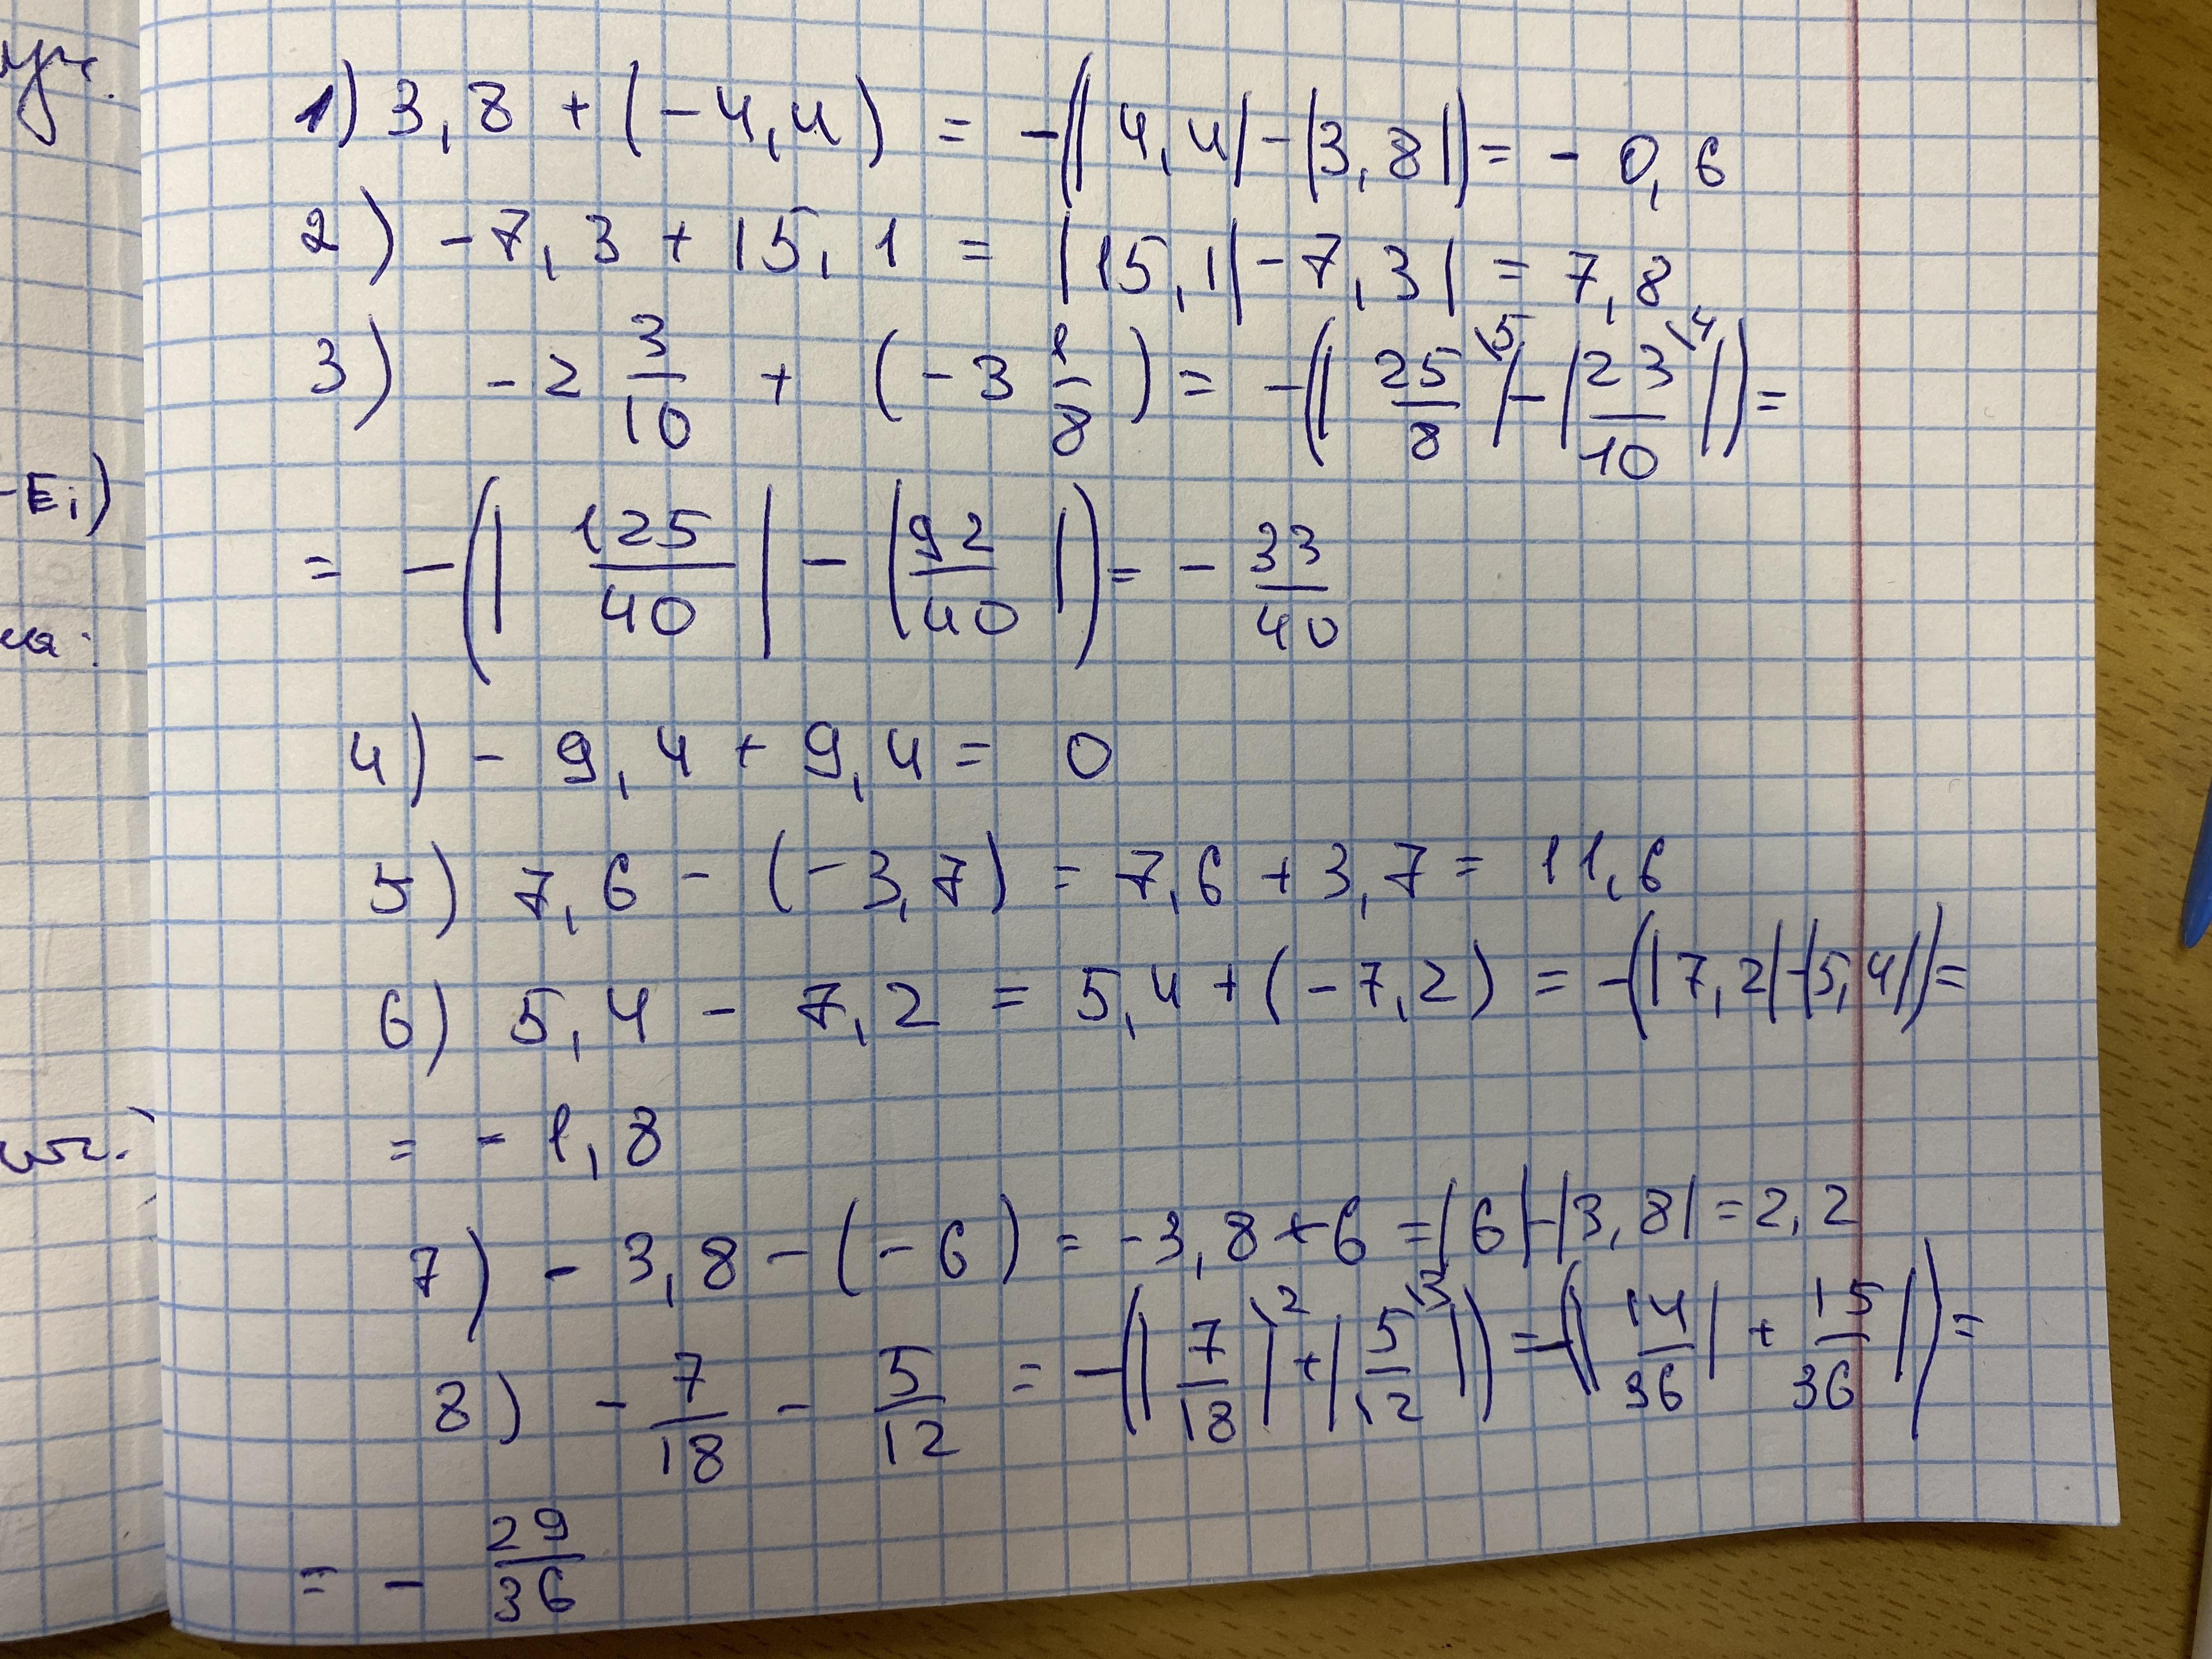 уч.
1) 3,8 + (-4,4) = -(|4,4|-|3,8|) = -0,6
2) -7,3 + 15,1 = |15,1|-7,3| = 7,8
3) -2 3/10 + (-3 1/8) = -(|25/8\5|-|23/10\4|) =
-Ei)
= -(|125/40|-|92/40|) = -33/40
4) -9,4 + 9,4 = 0
5) 7,6 - (-3,7) = 7,6 + 3,7 = 11,6
6) 5,4 - 7,2 = 5,4 + (-7,2) = -(|7,2|-|5,4|) =
= -1,8
7) -3,8 - (-6) = -3,8 + 6 = |6|-|3,8| = 2,2
8) -7/18 - 5/12 = -(|7/18|\2 + |5/12\3|) = -(|14/36| + 15/36|) =
= -29/36